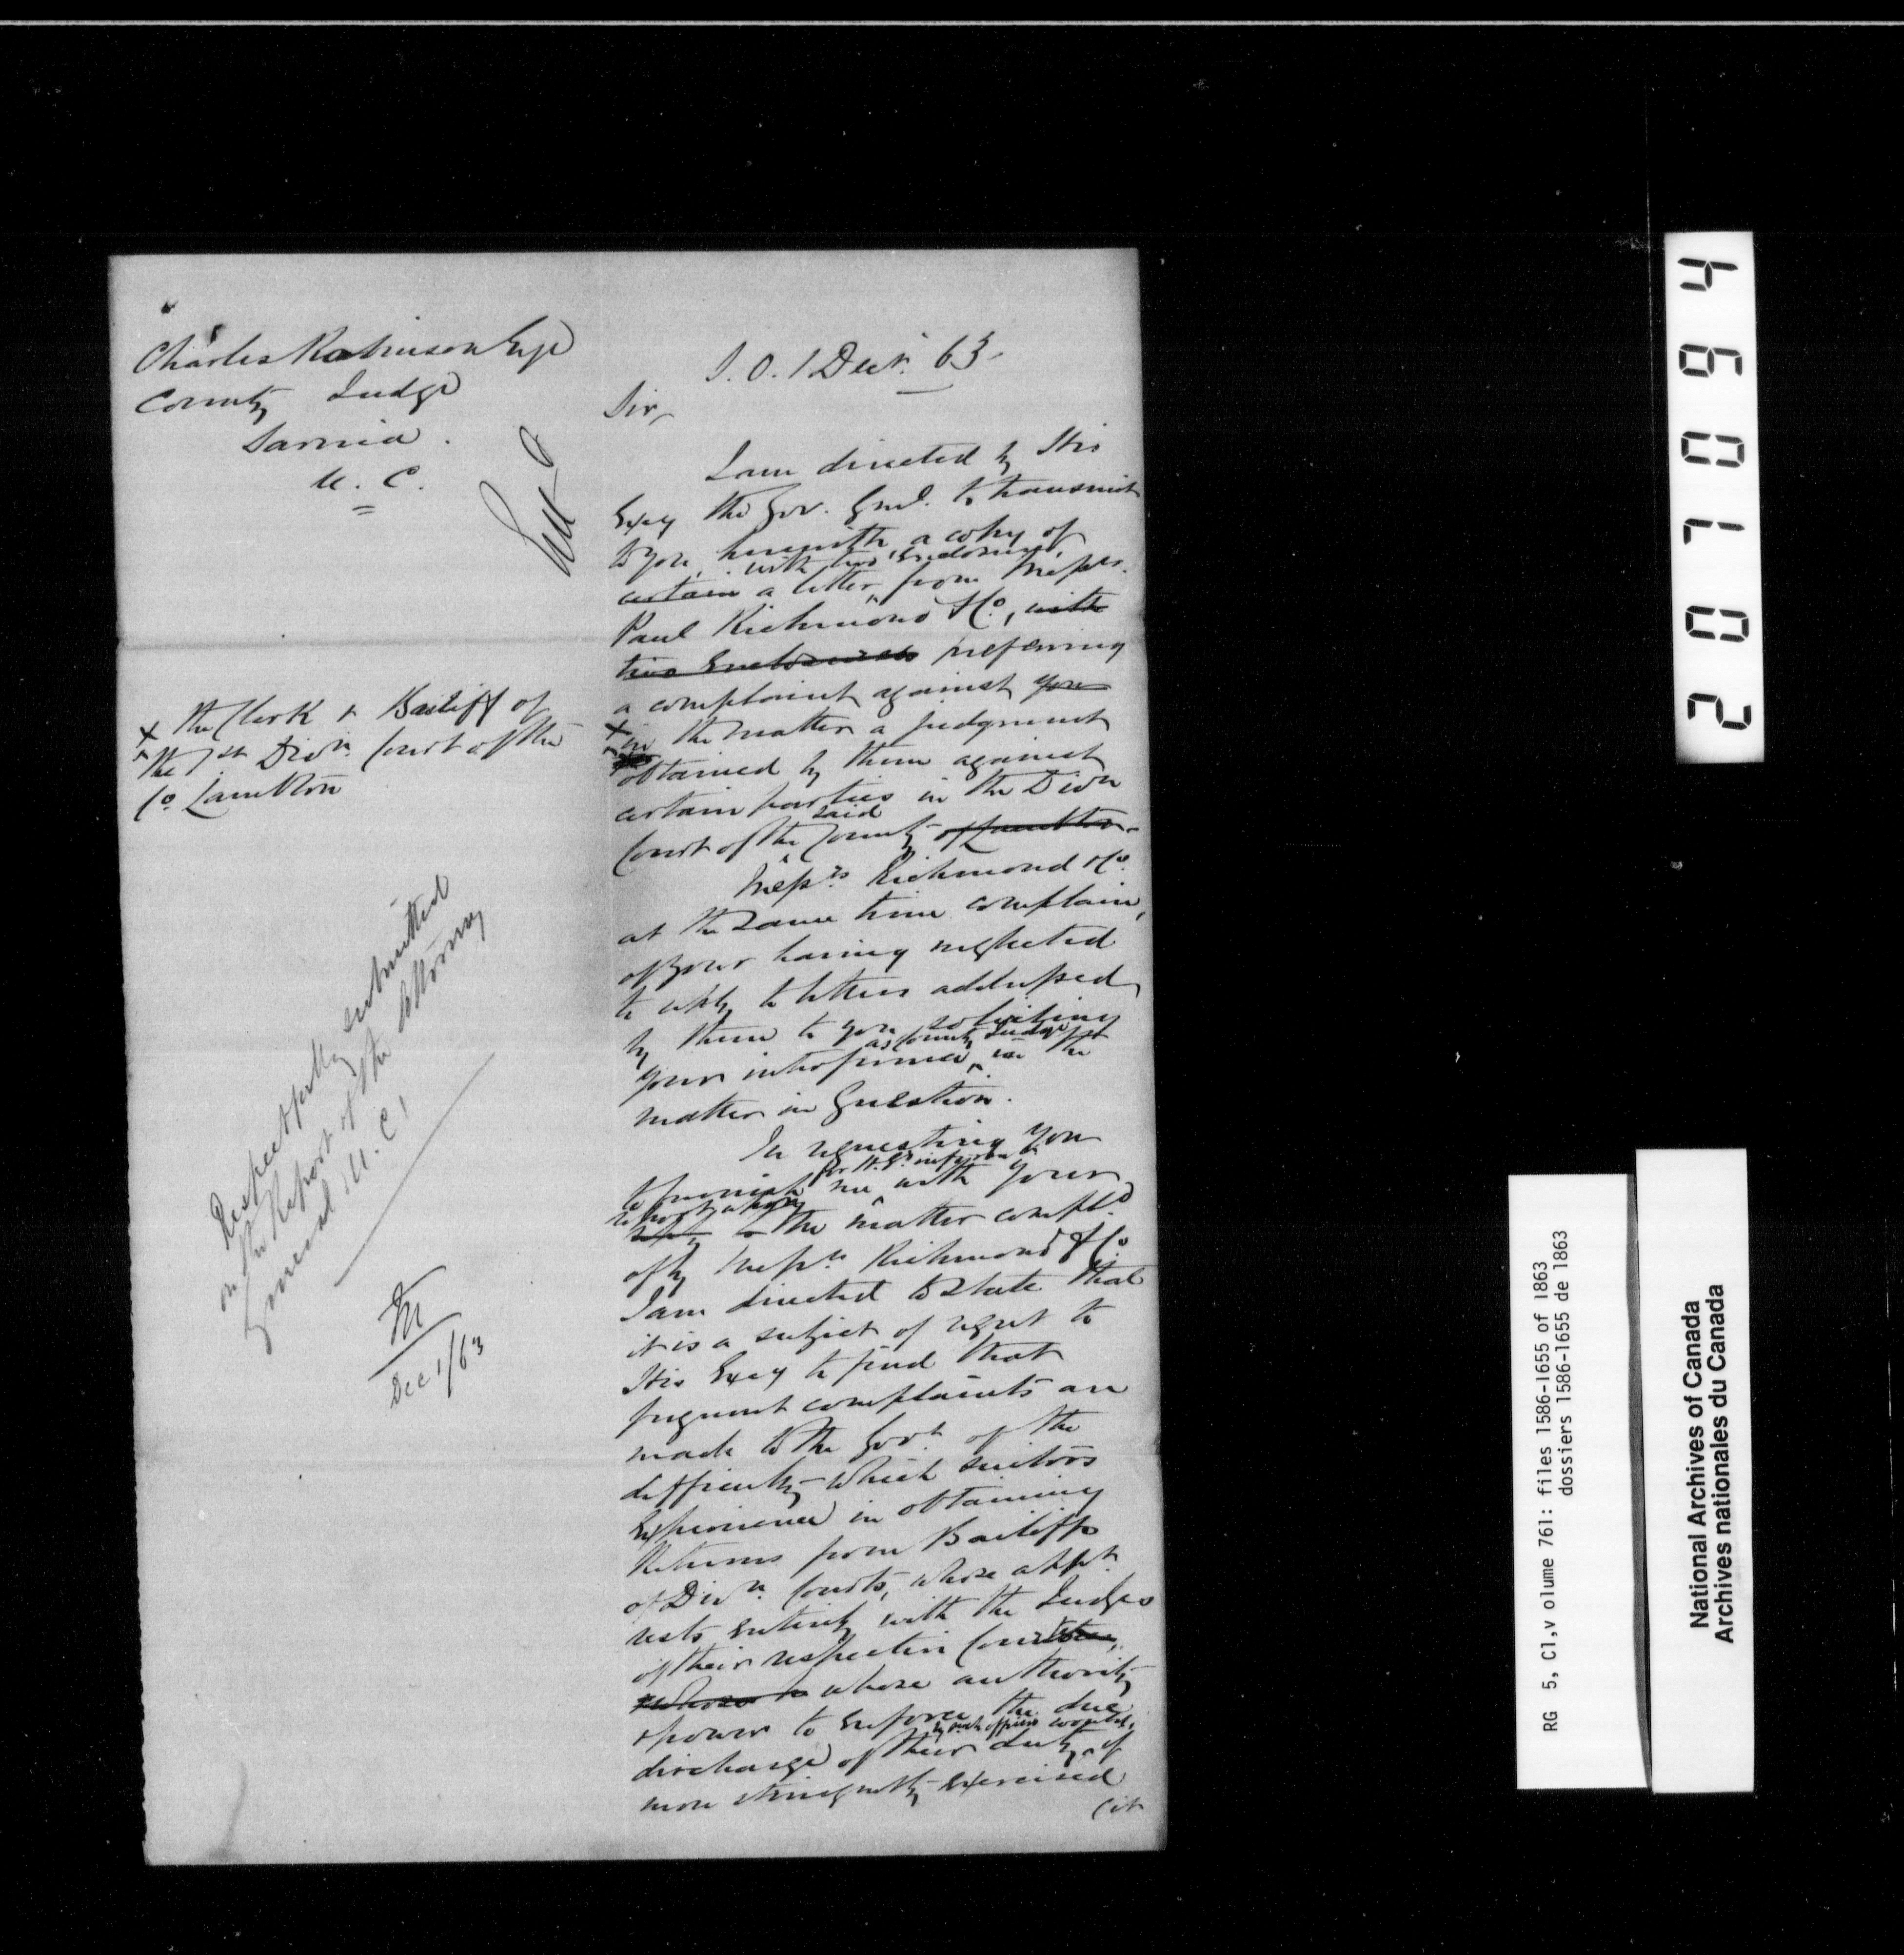 Charles Robinson Esqe
County Judge
Sarnia.
U. C.
S. O. 1 Decr. 63.
Sir,
I am directed by His
Exey the Gov. Genl. to transmit
to you, herewith, a copy of
with two enclosures,
certain a letter from Messrs.
Paul Richmond & Co., with
two Enclosures preferring
a complaint against you
x in the matter a judgment
obtained by them against
certain parties in the Divn
said
Court of the County of Lambton
x the Clerk & Bailiff of
the 1st Divn. Court of the
Co. Lambton
Messrs Richmond & Co.
at the same time complain,
of your having neglected
to reply to letters addressed
by them to you soliciting
as County Judge
your interference in the
matter in Question.
In requesting you
for H. E's informn
to furnish me with your
report upon
reply to the matter compld
of by Messrs Richmond & Co.
I am directed to state that
it is a subject of regret to
His Exey to find that
frequent complaints are
made to the Govt. of the
difficulty which suitors
Experience in obtaining
Returns from Bailiffs
of Divn. Courts, whose appt.
rests entirely with the Judges
of their respective Counties,
whose authority
& power to enforce the due
by such officers would,
discharge of their duty, if
more stringently exercised
(it
Respectfully submitted
on the Report of the Attorney
General U. C.
Dec 1/63
207094
RG 5, C1,v olume 761: files 1586-1655 of 1863
dossiers 1586-1655 de 1863
National Archives of Canada
Archives nationales du Canada